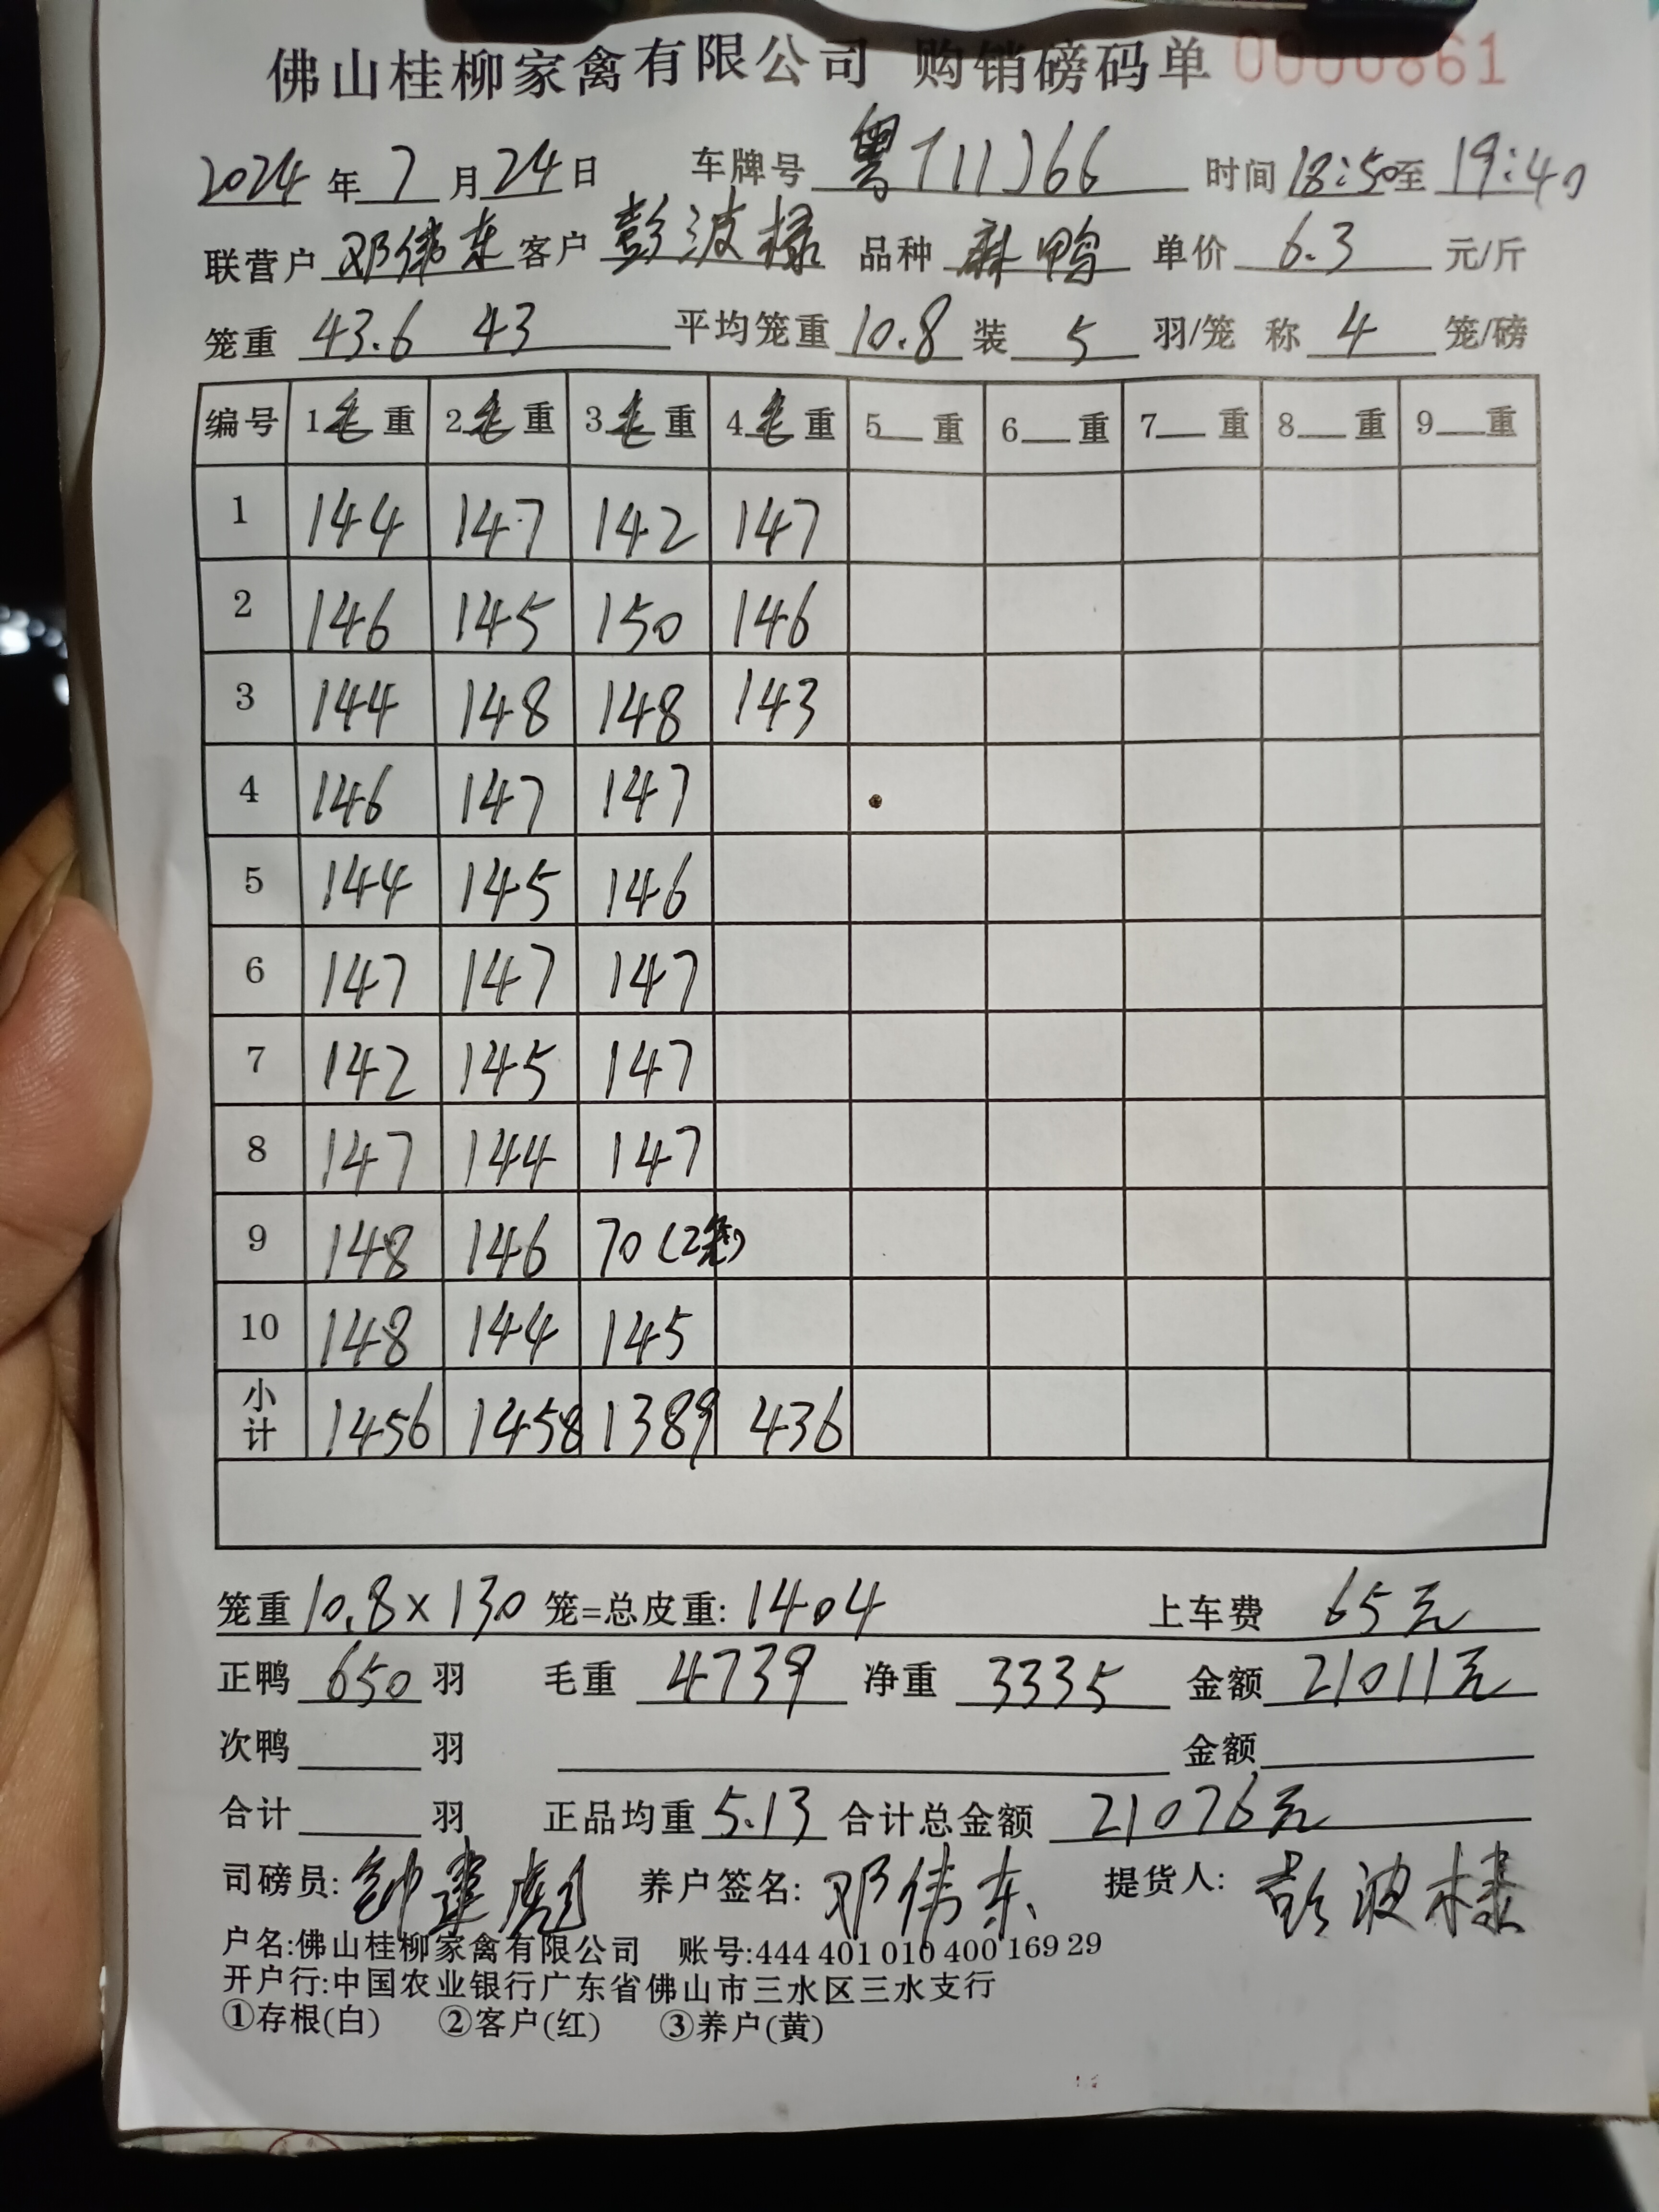 佛山桂柳家禽有限公司 购销磅码单 0000861
2024年7月24日 车牌号 粤T11J66 时间18:50至19:40
联营户 邓伟东 客户 彭波 品种 麻鸭 单价 6.3 元/斤
笼重 43.6 43 平均笼重 10.8 装 5 羽/笼 称 4 笼/磅
编号 1毛重 2毛重 3毛重 4毛重 5__重 6__重 7__重 8__重 9__重
1 144 147 142 147
2 146 145 150 146
3 144 148 148 143
4 146 147 147
5 144 145 146
6 147 147 147
7 142 145 147
8 147 144 147
9 148 146 70(2笼)
10 148 144 145
小计 1456 1458 1389 436
笼重10.8×130笼=总皮重:1404 上车费 65元
正鸭 650 羽 毛重 4739 净重 3335 金额 21011元
次鸭____羽 金额
合计____羽 正品均重 5.13 合计总金额 21076元
司磅员: 养户签名:邓伟东 提货人:彭波
户名:佛山桂柳家禽有限公司 账号:444 401 010 400 169 29
开户行:中国农业银行广东省佛山市三水区三水支行
①存根(白) ②客户(红) ③养户(黄)